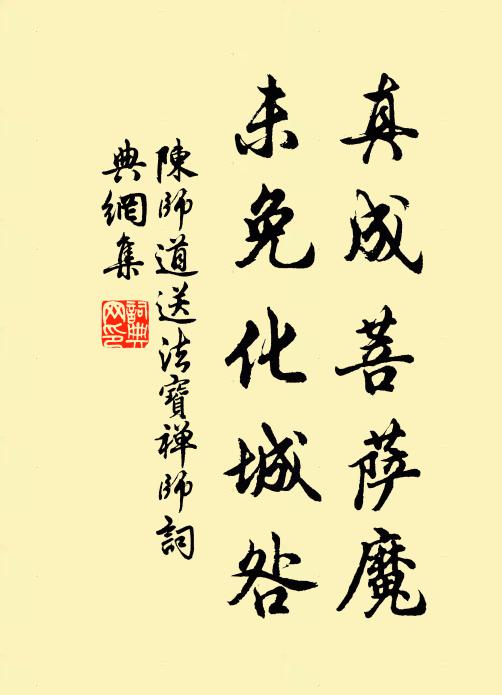 真成菩薩魔
未免化城咎
陳師道送法寶禅師詞
典網集
詞典
网印